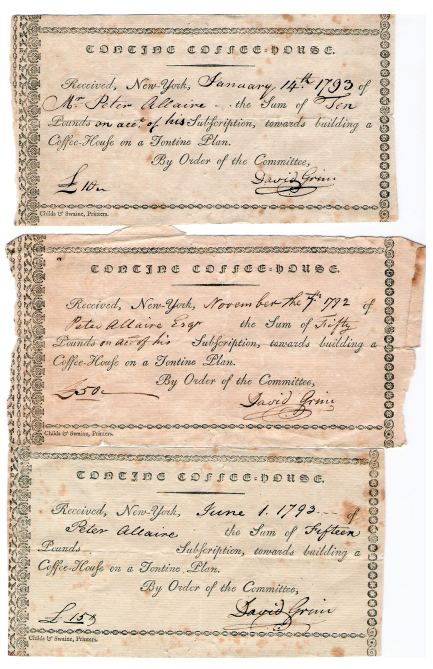 TONTINE COFFEE-HOUSE.
Received, New-York, January 14.th 1793 of
Mr. Peter Allaire -- the Sum of Ten
Pounds on acct. of his Subscription, towards building a
Coffee-House on a Tontine Plan.
By Order of the Committee,
£ 10 David Grim
Childs & Swaine, Printers.
TONTINE COFFEE-HOUSE.
Received, New-York, November the 7th 1792 of
Peter Allaire Esqr the Sum of Fifty
Pounds on acct of his Subscription, towards building a
Coffee-House on a Tontine Plan.
By Order of the Committee,
£50 David Grim
Childs & Swaine, Printers.
TONTINE COFFEE-HOUSE.
Received, New-York, June 1. 1793 -- of
Peter Allaire the Sum of Fifteen
Pounds Subscription, towards building a
Coffee-House on a Tontine Plan.
By Order of the Committee,
£ 15 David Grim
Childs & Swaine, Printers.